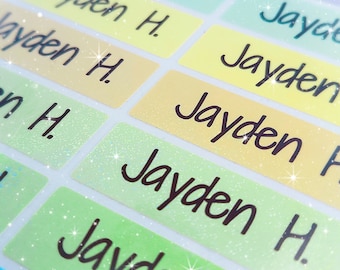 Jayden
Jayden H.
Jayden
Jayden H.
Jayden H.
Jayden H.
Jayden H.
Jayden